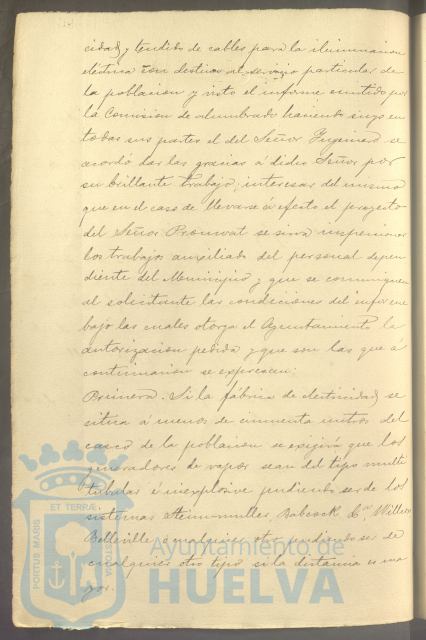 cidad, y tendido de cables para la iluminacion
eléctrica con destino al servicio particular de
la poblacion y visto el informe emitido por
la Comision de alumbrado haciendo suyo en
todas sus partes el del Señor Ingeniero se
acordó dar las gracias á dicho Señor por
su brillante trabajo, interesar del mismo
que en el caso de llevarse á efecto el proyecto
del Señor se sirva inspeccionar
los trabajos auxiliado del personal depen
diente del Municipio y que se comuniquen
al solicitante las condiciones del informe
bajo las cuales otorga el Ayuntamiento la
autorizacion pedida y que son las que á
continuacion se expresan:
Primera. Si la fábrica de electricidad se
situa á menos de cincuenta metros del
casco de la poblacion se exigirá que los
generadores de vapor sean del tipo multi
tubular é inexplosive pudiendo ser de los
sistemas Babcock &
Belleville ó cualquier otro pudiendo ser de
cualquier otro tipo si la distancia es ma
yor.
ET TERRÆ
PORTUS MARIS
CUSTODIA
Ayuntamiento de
HUELVA